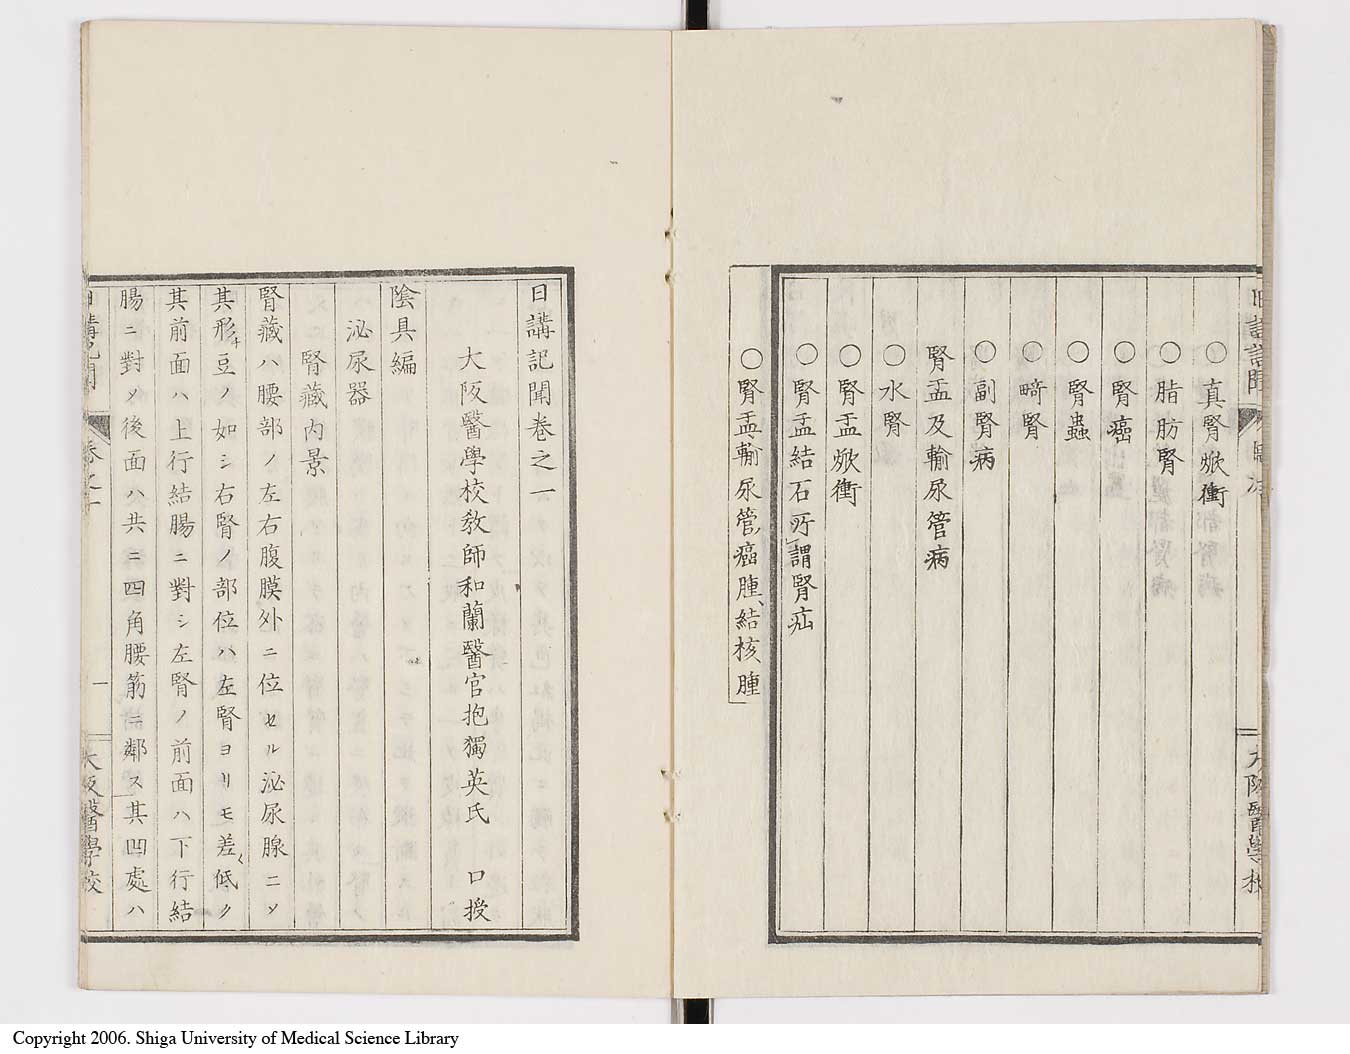 ○真腎焮衝
○脂肪腎
○腎癌
○腎蟲
○畸腎
○副腎病
腎盂及輸尿管病
○水腎
○腎盂焮衝
○腎盂結石所謂腎疝
○腎盂、輸尿管、癌腫、結核腫
日講記聞卷之一
大阪醫學校教師和蘭醫官抱獨英氏 口授
陰具編
泌尿器
腎藏内景
腎藏ハ腰部ノ左右腹膜外ニ位セル泌尿腺ニソ
其形チ豆ノ如シ右腎ノ部位ハ左腎ヨリモ差〱低ク
其前面ハ上行結腸ニ對シ左腎ノ前面ハ下行結
腸ニ對ノ後面ハ共ニ四角腰筋ニ鄰ス其凹處ハ
日講記聞 卷之一 一 大阪醫學校
Copyright 2006. Shiga University of Medical Science Library